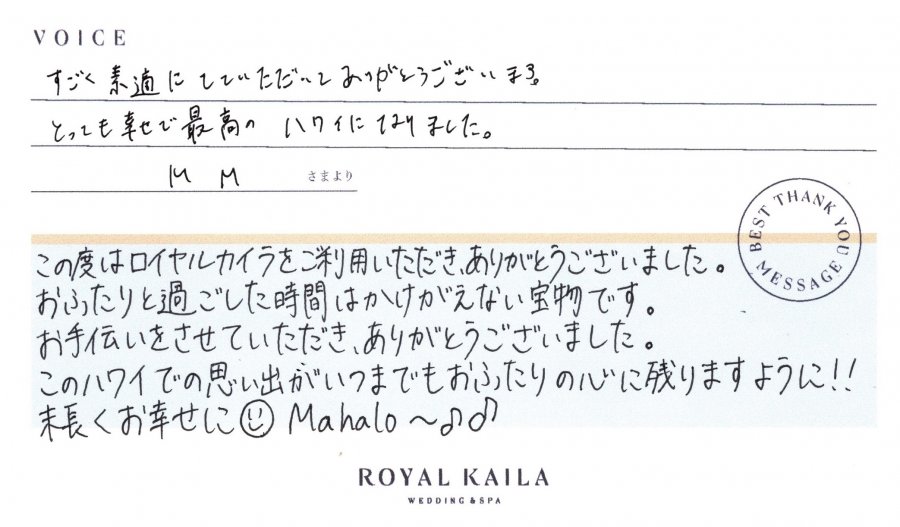 VOICE
すごく素適にしていただいてありがとうございます。
とっても幸せで最高の ハワイになりました。
M M さまより
BEST THANK YOU MESSAGE
この度はロイヤルカイラをご利用いただき、ありがとうございました。
おふたりと過ごした時間はかけがえない宝物です。
お手伝いをさせていただき、ありがとうございました。
このハワイでの思い出がいつまでもおふたりの心に残りますように!!
末長くお幸せに☺ Mahalo〜♪♪
ROYAL KAILA
WEDDING & SPA